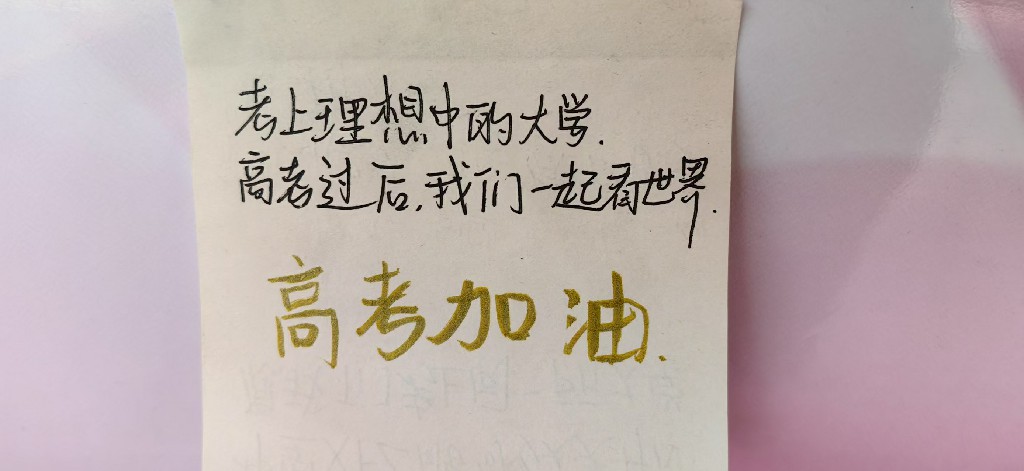 考上理想中的大学.
高考过后,我们一起看世界.
高考加油.